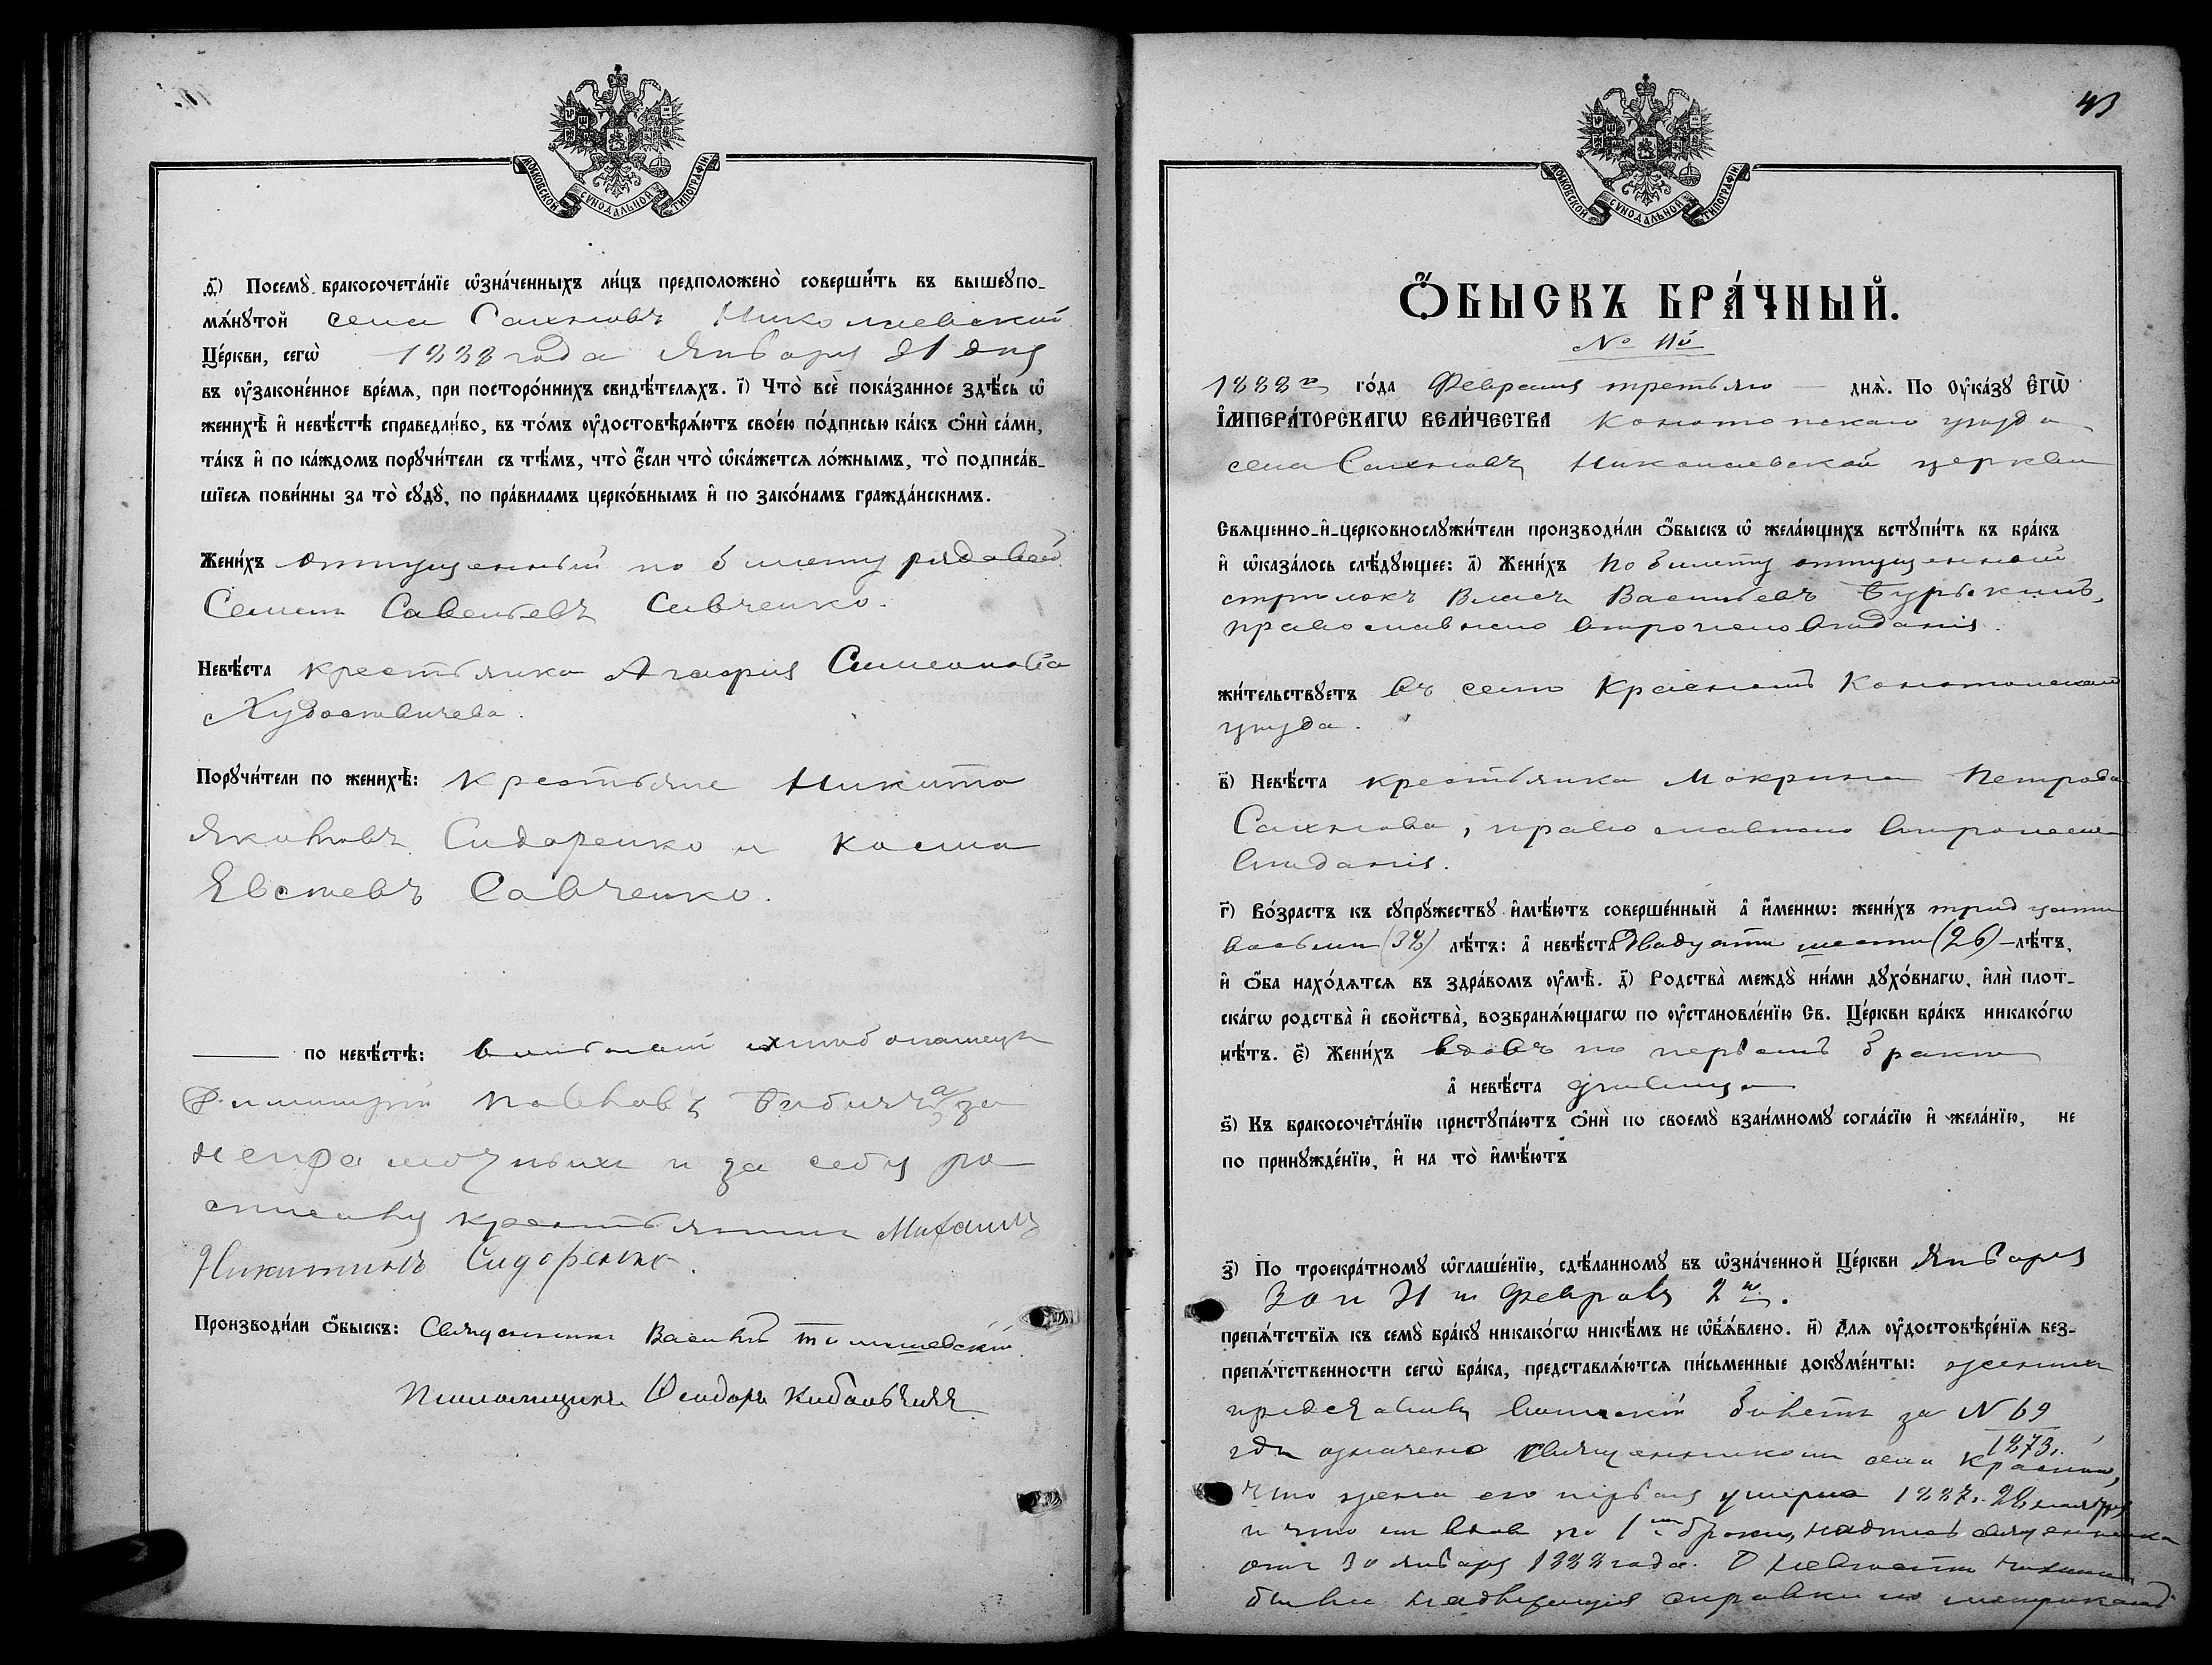 МОСКОВСКОЙ СѴНОДАЛЬНОЙ ТИПОГРАФІИ
д҃і) Посемꙋ̀ бракосочета́нїе ѡ҆зна́ченныхъ ли́цъ предположено̀ соверши́ть въ вышеꙋпо-
мѧ́нꙋтой села Сахновъ Николаевской
Це́ркви, сегѡ̀ 1888 года Января 31 дня
въ ᲂу҆законе́нное вре́мѧ, при посторо́ннихъ свидѣ́телѧхъ. і҃) Что̀ всѐ пока́занное здѣ́сь ѡ҆
женихѣ̀ и҆ невѣ́стѣ справедли́во, въ то́мъ ᲂу҆достовѣрѧ́ютъ свое́ю по́дписью ка́къ ѻ҆нѝ са́ми,
та́къ и҆ по ка́ждомъ порꙋчи́тели съ тѣ́мъ, что̀ є҆́сли что̀ ѡ҆ка́жетсѧ ло́жнымъ, то̀ подписа́в-
шїесѧ пови́нны за то̀ сꙋдꙋ̀, по пра́виламъ церко́внымъ и҆ по зако́намъ гражда́нскимъ.
Жени́хъ отпущенный по билету рядовой
Семенъ Савельевъ Савченко.
Невѣ́ста крестьянка Агафія Симеонова
Худоствичева.
Порꙋчи́тели по женихѣ̀: крестьяне Никита
Яковлевъ Сидоренко и Косма
Евстевъ Савченко.
по невѣ́стѣ:
Павловъ за
неграмотныхъ и за себя ро
списався крестьянинъ Михаилъ
Никитинъ Сидоренко.
Производи́ли ѻ҆́быскъ: Священникъ Василій
Псаломщикъ Ѳеодоръ Кибальчичъ
43
МОСКОВСКОЙ СѴНОДАЛЬНОЙ ТИПОГРАФІИ
Ѻ҆́БЫСКЪ БРА́ЧНЫЙ.
№ 11й
1888го го́да Февраля третьяго дня̀. По Оу҆ка́зꙋ Є҆ГѠ̀
І҆МПЕРА́ТОРСКАГѠ ВЕЛИ́ЧЕСТВА Конотопскаго уѣзда
села Сахновъ Николаевской церкви
Свѧщенно-и҆-церковнослꙋжи́тели производи́ли ѻ҆́быскъ ѡ҆ жела́ющихъ встꙋпи́ть въ бра́къ
и҆ ѡ҆каза́лось слѣ́дꙋющее: а҃) Жени́хъ по билету отпущенный
стрѣлокъ Власъ Васильевъ
православнаго вѣроисповѣданія.
жи́тельствꙋетъ въ селѣ Красномъ Конотопскаго
уѣзда.
в҃) Невѣ́ста крестьянка Мокрина Петрова
Сахнова, православнаго вѣроиспо
вѣданія.
г҃) Во́зрастъ къ сꙋпрꙋ́жествꙋ и҆мѣ́ютъ соверше́нный а҆ и҆́меннѡ: жени́хъ тридцати
восьми (38) лѣ́тъ: а҆ невѣ́ста двадцати шести (26) лѣ́тъ,
и҆ ѻ҆́ба нахо́дѧтсѧ въ здра́вомъ ᲂу҆мѣ̀. д҃) Родства̀ междꙋ̀ ни́ми дꙋхо́внагѡ, и҆лѝ плот-
ска́гѡ родства̀ и҆ свойства̀, возбранѧ́ющагѡ по ᲂу҆становле́нїю Св. Це́ркви бра́къ никако́гѡ
нѣ́тъ. є҃) Жени́хъ вдовъ по первомъ бракѣ
а҆ невѣ́ста дѣвица
ѕ҃) Къ бракосочета́нїю пристꙋпа́ютъ ѻ҆нѝ по своемꙋ̀ взаи́мномꙋ согла́сїю и҆ жела́нїю, не
по принꙋжде́нїю, и҆ на то̀ и҆мѣ́ютъ
з҃) По троекра́тномꙋ ѡ҆глаше́нїю, сдѣ́ланномꙋ въ ѡ҆зна́ченной Це́ркви Января
30 и 31 и Февраля 2го.
препѧ́тствїѧ къ семꙋ̀ бра́кꙋ никако́гѡ никѣ́мъ не ѡ҆б̾ѧ́влено. и҃) Длѧ ᲂу҆достовѣре́нїѧ без-
препѧ́тственности сегѡ̀ бра́ка, представлѧ́ютсѧ пи́сьменные докꙋме́нты: женихъ
представилъ билетъ за № 69
1873.
гдѣ означено священникомъ села Красного,
что жена его первая умерла 1887. 28 ноября
и что онъ вдовъ по 1мъ бракѣ, надпись священника
отъ 30 января 1888 года. О невѣстѣ
были справки по метрикамъ